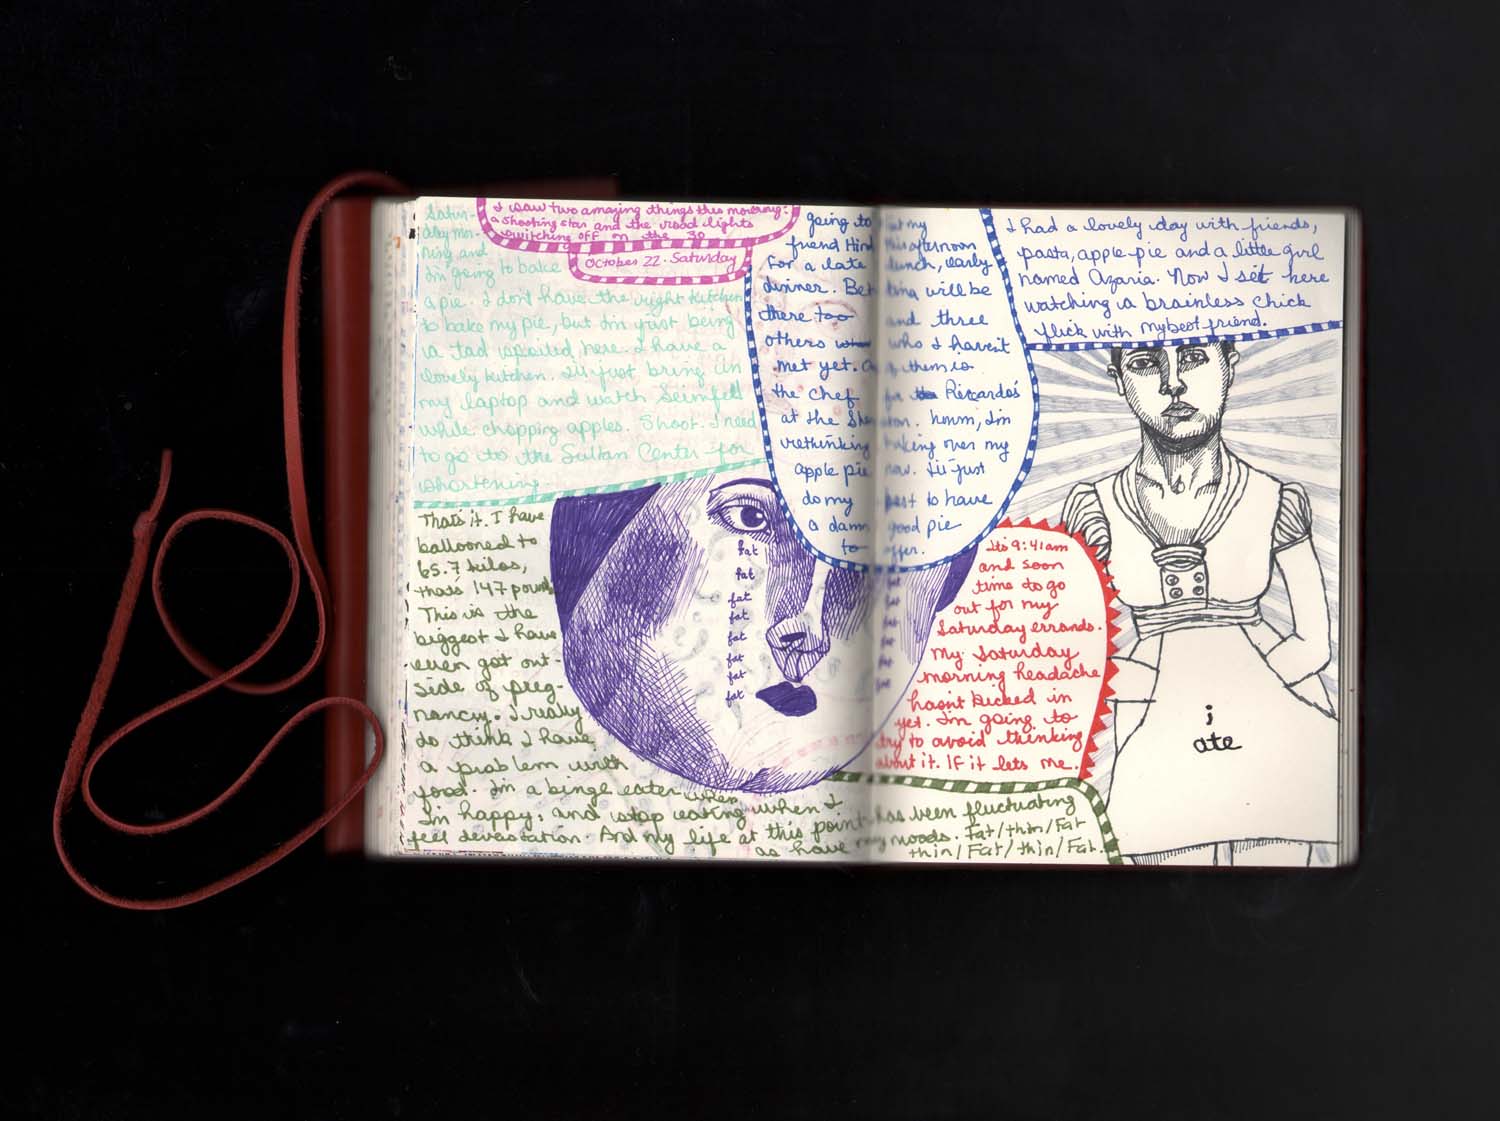 I saw two amazing things this morning:
a shooting star and the road lights
switching off on the 30
October 22. Saturday
Satur-
day mor-
ning and
I'm going to bake
a pie. I don't have the right kitchen
to bake my pie, but I'm just being
a tad spoiled here. I have a
lovely kitchen. I'll just bring in
my laptop and watch Seinfeld
while chopping apples. Shoot. I need
to go to the Sultan Center for
shortening.
That's it. I have
ballooned to
65.7 kilos,
that's 147 pounds
This is the
biggest I have
even got out-
side of preg-
nancy. I really
do think I have
a problem with
food. I'm a binge eater when
I'm happy, and stop eating when I
feel devastation. And my life at this point has been fluctuating
as have my moods. Fat/thin/Fat
thin/Fat/thin/Fat.
fat
fat
fat
fat
fat
fat
fat
fat
fat
fat
fat
fat
fat
going to my
friend Hind this afternoon
for a late lunch, early
dinner. will be
there too and three
others who I haven't
met yet. of them is
the chef for the Riccardo's
at the hmm, I'm
rethinking making over my
apple pie now. I'll just
do my best to have
a damn good pie
to offer.
It's 9:41am
and soon
time to go
out for my
Saturday errands.
My Saturday
morning headache
hasn't kicked in
yet. I'm going to
try to avoid thinking
about it. If it lets me.
I had a lovely day with friends,
pasta, apple-pie and a little girl
named Azaria. Now I sit here
watching a brainless chick
flick with my best friend.
i
ate